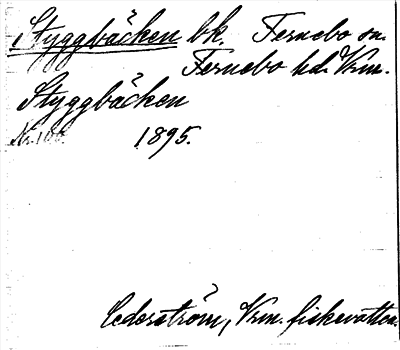 Styggbäcken bk. Fernebo sn.
Fernebo hd. Vrm.
Styggbäcken
1895.
Cederström, Vrm. fiskevatten.